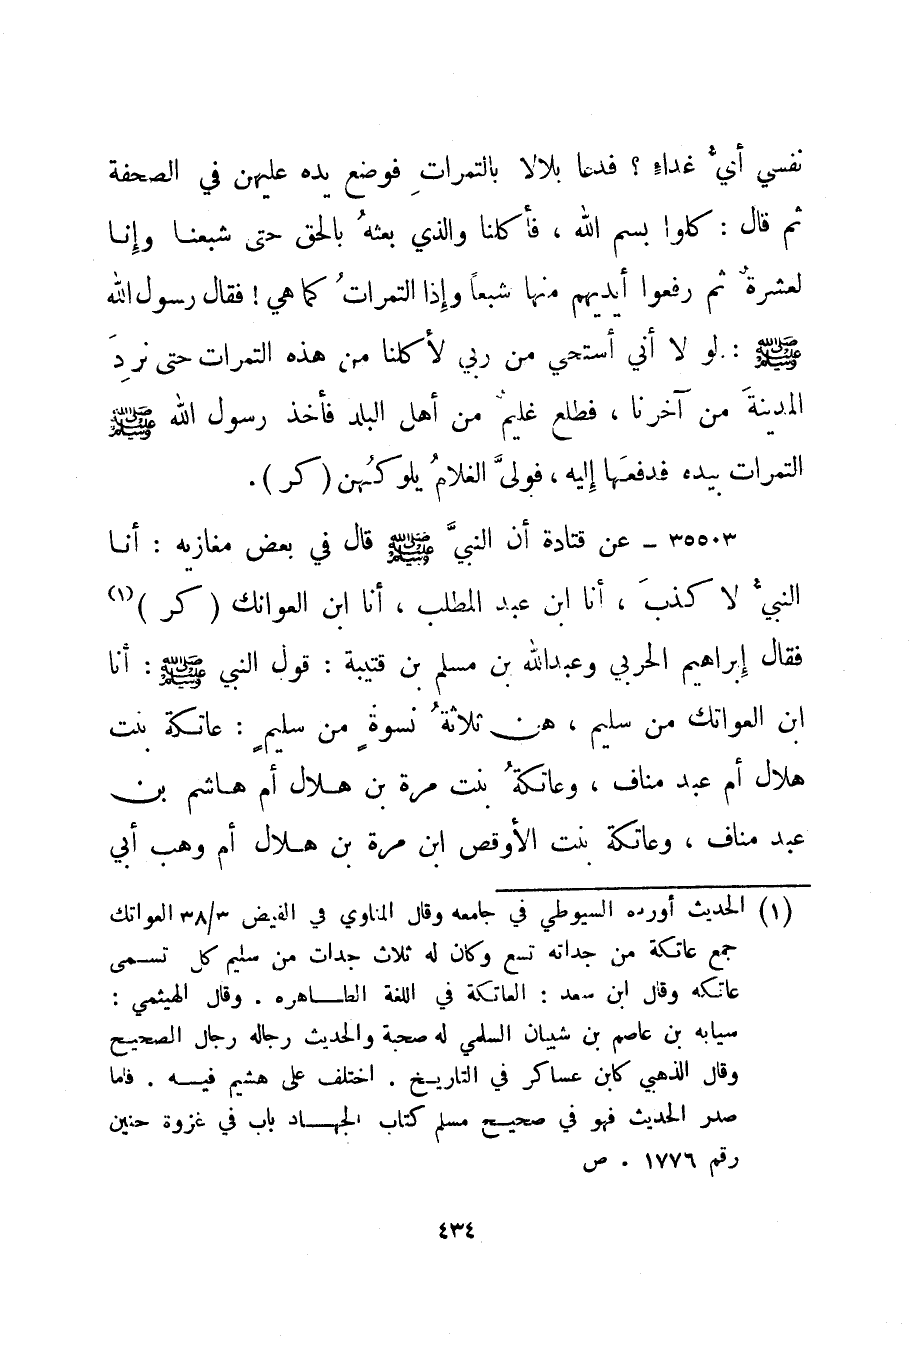 نفسي أيُّ غداءٍ ؟ فدعا بلالا بالتمراتِ فوضع يده عليهن في الصحفة
ثم قال : كلوا بسم الله ، فأكلنا والذي بعثهُ بالحق حتى شبعنا وإنا
لعشرةٌ ثم رفعوا أيديهم منها شبعاً وإذا التمراتُ كما هي ! فقال رسول الله
ﷺ : لو لا أني أستحي من ربي لأكلنا من هذه التمرات حتى نردَ
المدينةَ من آخرنا ، فطلع غليمٌ من أهل البلد فأخذ رسول الله ﷺ
التمرات بيده فدفعها إليه ، فولىَّ الغلامُ يلوكُهن ( كر ) .
٣٥٥٠٣ ــ عن قتادة أن النبيَّ ﷺ قال في بعض مغازيه : أنا
النبيُّ لا كذبَ ، أنا ابن عبد المطلب ، أنا ابن العواتك ( كر ) (١)
فقال إبراهيم الحربي وعبدالله بن مسلم بن قتيبة : قول النبي ﷺ : أنا
ابن العواتك من سليم ، هن ثلاثةُ نسوةٍ من سليمٍ : عاتكة بنت
هلال أم عبد مناف ، وعاتكةُ بنت مرة بن هلال أم هاشم بن
عبد مناف ، وعاتكة بنت الأوقص ابن مرة بن هلال أم وهب أبي
(١) الحديث أورده السيوطي في جامعه وقال المناوي في الفيض ٣٨/٣ العواتك
جمع عاتكة من جداته تسع وكان له ثلاث جدات من سليم كل تسمى
عاتكه وقال ابن سعد : العاتكة في اللغة الطاهره . وقال الهيثمي :
سيابه بن عاصم بن شيبان السلمي له صحبة والحديث رجاله رجال الصحيح
وقال الذهبي كابن عساكر في التاريخ . اختلف على هشيم فيه . فاما
صدر الحديث فهو في صحيح مسلم كتاب الجهاد باب في غزوة حنين
رقم ١٧٧٦ . ص
٤٣٤